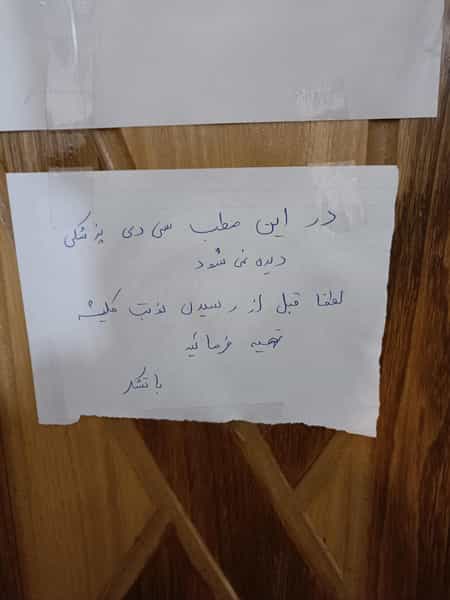 در این مطب سی دی پزشکی
دیده نمی شود
لطفا قبل از رسیدن نوبت کلیشه
تهیه فرمائید
با تشکر